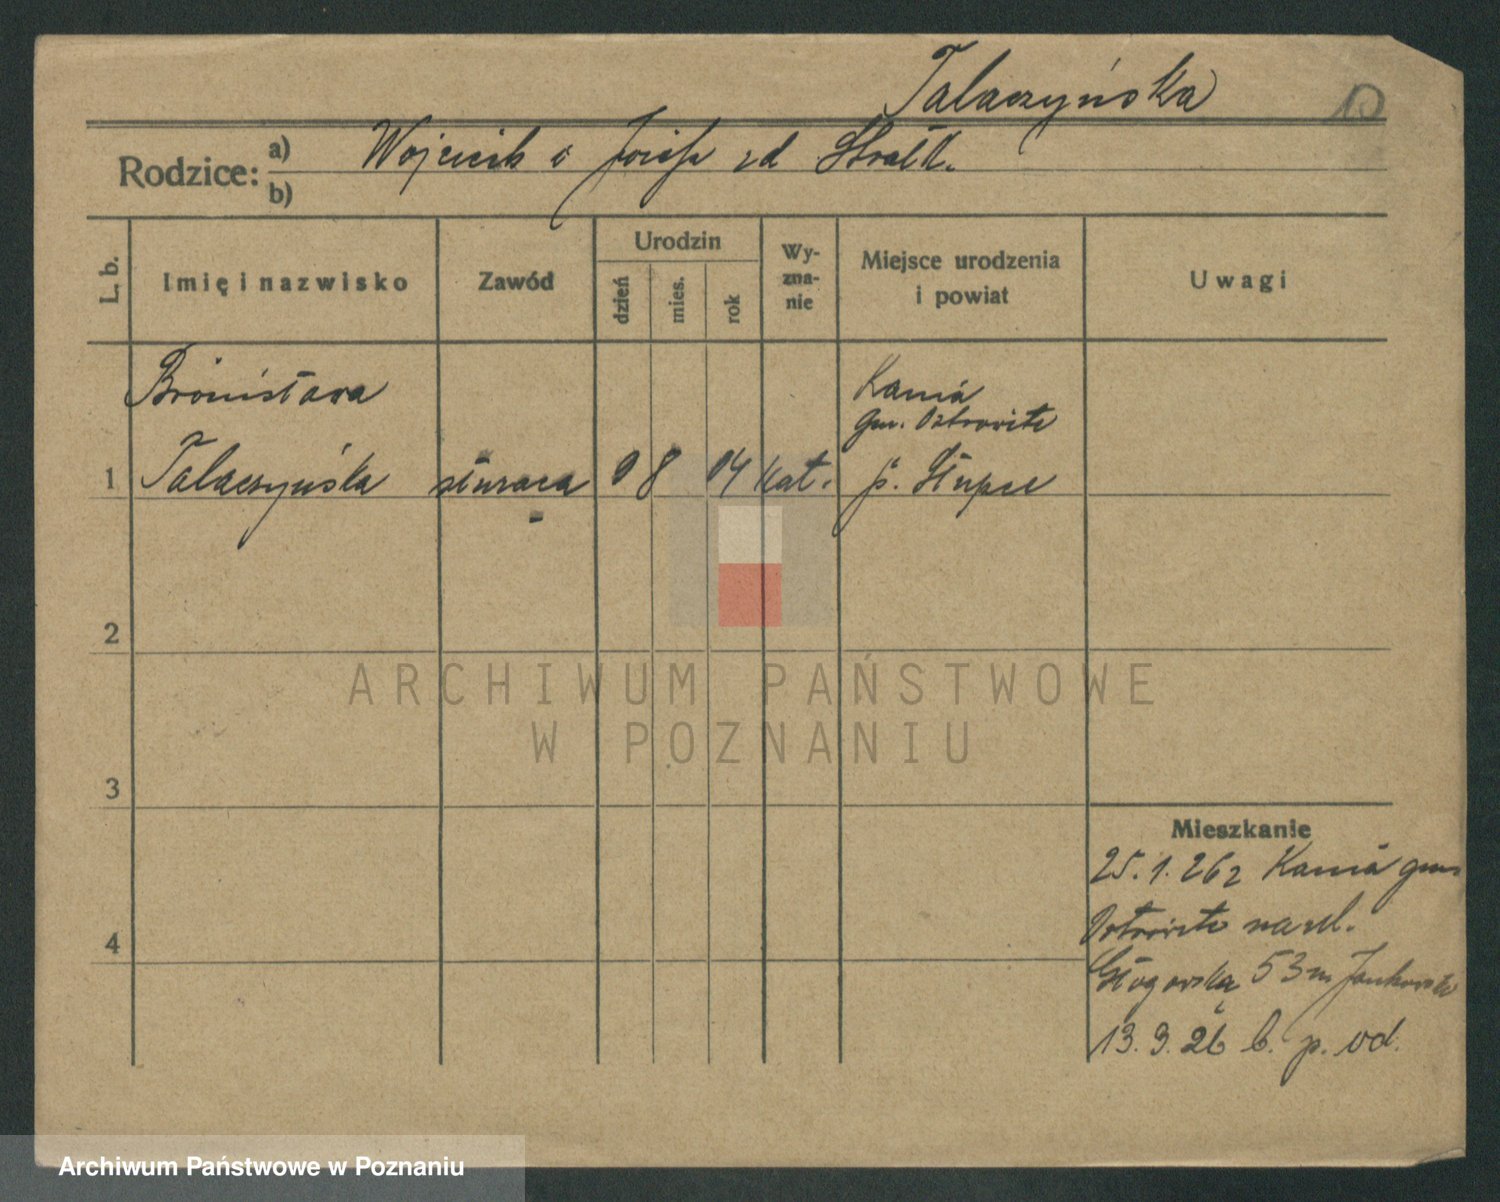 Talaczyńska
10
Rodzice: a) Wojciech i Józefa zd
b)
L. b. Imię i nazwisko Zawód Urodzin dzień mies. rok Wy-zna-nie Miejsce urodzenia i powiat Uwagi
Bronisława Kania
gm. Ostrowite
1 Talaczyńska służąca 9 8 04 kat. p. Słupca
2
ARCHIWUM PAŃSTWOWE
W POZNANIU
3
Mieszkanie
25.1.26 z Kania gm
Ostrowite na ul.
4
Głogowska 53 m
13.9.26 b. p. od.
Archiwum Państwowe w Poznaniu